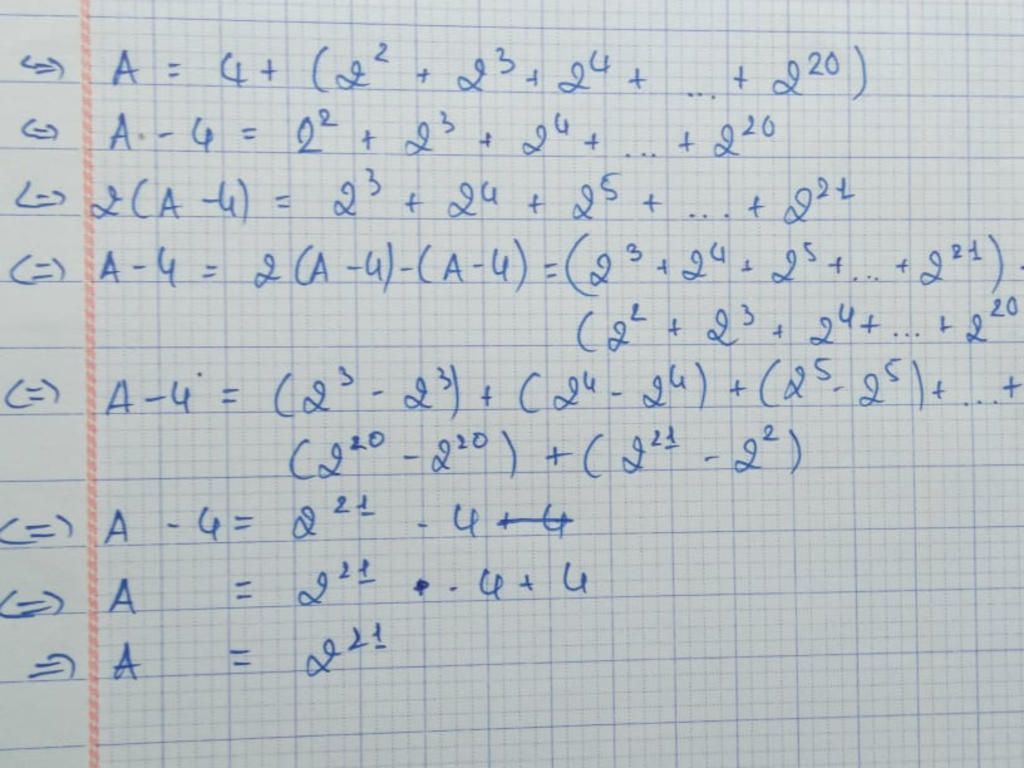 <=> A = 4 + (2² + 2³ + 2⁴ + ... + 2²⁰)
<=> A - 4 = 2² + 2³ + 2⁴ + ... + 2²⁰
<=> 2(A - 4) = 2³ + 2⁴ + 2⁵ + ... + 2²¹
<=> A - 4 = 2(A - 4) - (A - 4) = (2³ + 2⁴ + 2⁵ + ... + 2²¹) -
(2² + 2³ + 2⁴ + ... + 2²⁰
<=> A - 4 = (2³ - 2³) + (2⁴ - 2⁴) + (2⁵ - 2⁵) + ... +
(2²⁰ - 2²⁰) + (2²¹ - 2²)
<=> A - 4 = 2²¹ - 4 + 4
<=> A = 2²¹ - 4 + 4
=> A = 2²¹